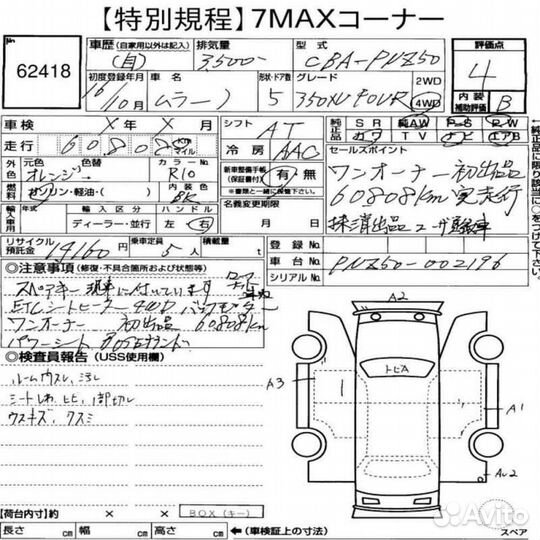 【特別規程】7MAXコーナー
No.
62418
車歴(自家用以外は記入)
(自)
排気量
3500
型式
CBA-PNZ50
評価点
4
初度登録年月
16/10月
車名
ムラーノ
形状・ドア数
5
グレード
350XV FOUR
2WD
4WD
内装補助評価
B
車検 × 年 × 月
走行 60808 km マイル
シフト
AT
冷房
AAC
純正品
SR
純AW
P-S
P-W
カワ
TV
ナビ
エアB
外色
元色
オレンジ→
色替
カラーNo.
R10
新車整備手帳(保証書付)
有・無
セールスポイント
ワンオーナー 初出品
60808km 実走行
燃料
ガソリン・軽油・( )
内装色
BK
名義変更期限
月 日
輸入車用
年式
輸入区分
ディーラー・並行
ハンドル
左 右
リサイクル預託金
円
乗車定員
5人
積載量
t
登録No.
車台No.
PNZ50-002196
シリアルNo.
◎注意事項(修復・不具合箇所および状態等)
スペアキー 現車に付いています
ETC シートヒーター 4WD バックモニター
ワンオーナー 初出品 60808km
パワーシート BOSEサウンド
◎検査員報告(USS使用欄)
ルームウスレ、汚レ
A2
トビA
A3
A1
【荷台内寸】約 × ×
BOX(キー)
長さ cm 幅 cm 高さ cm ←(車検証上の寸法)
スペア
Avito